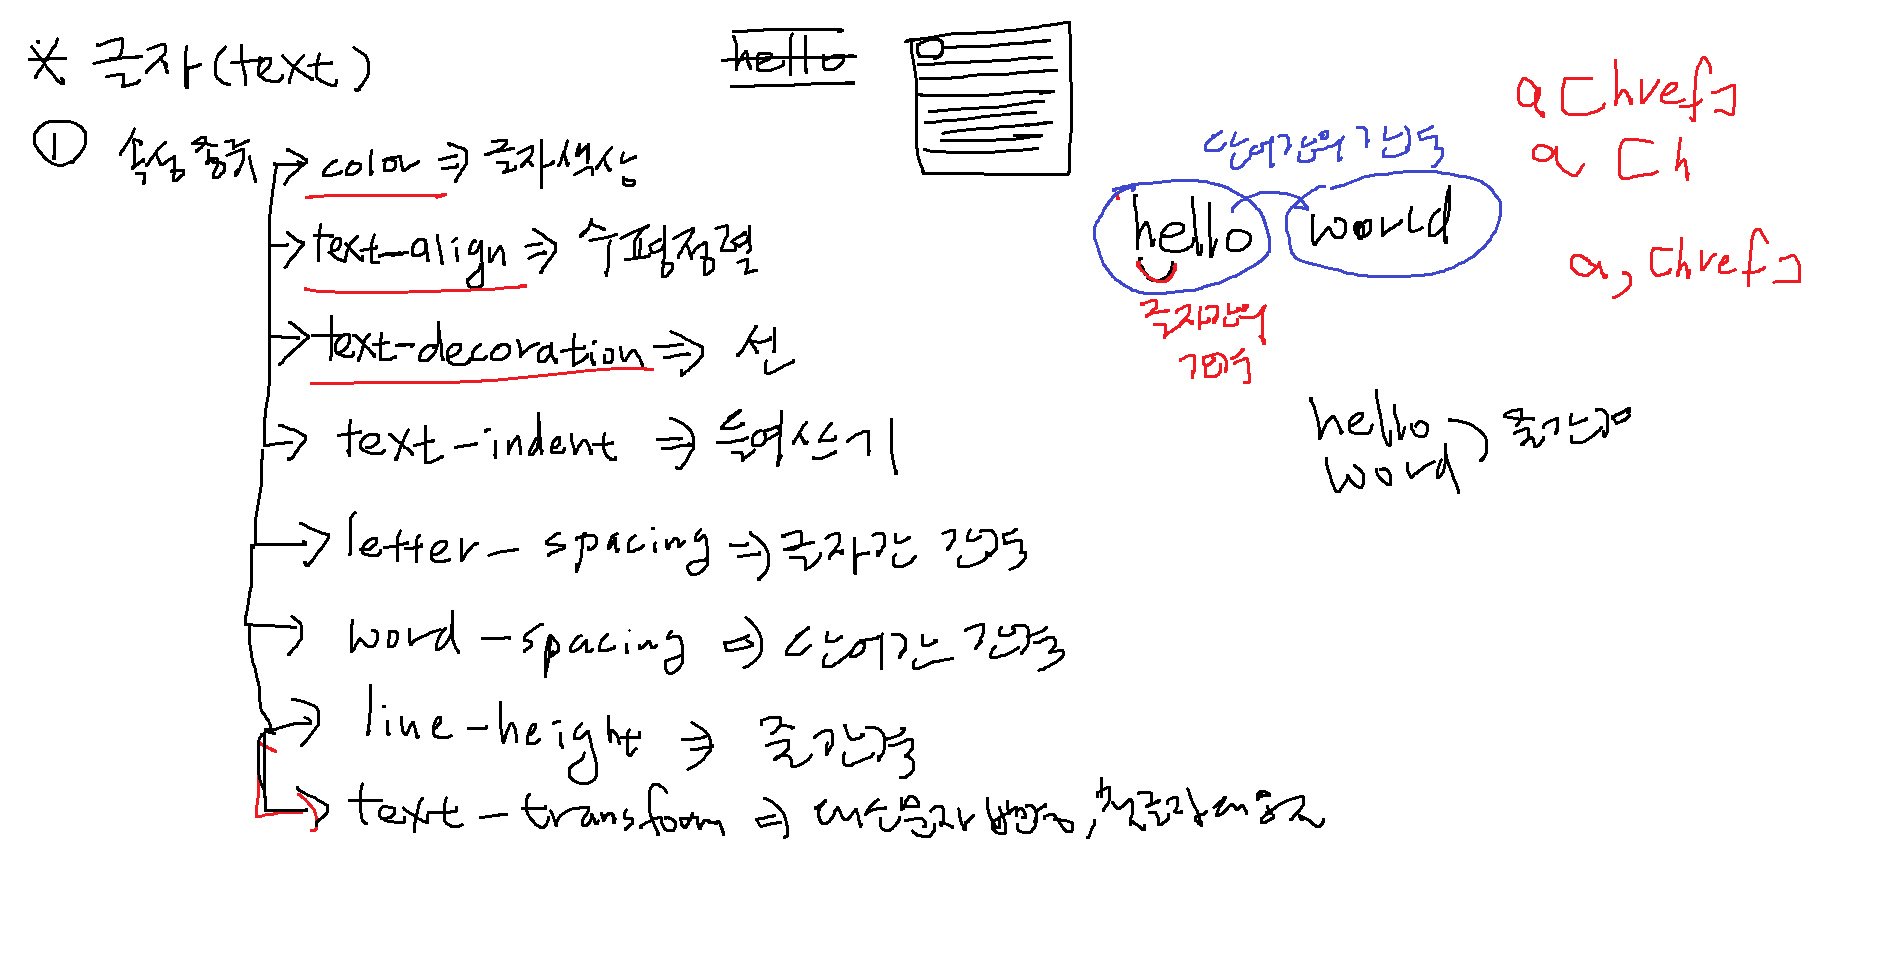 * 글자(text)
hello
① 속성 종류
→ color ⇒ 글자색상
→ text-align ⇒ 수평정렬
→ text-decoration ⇒ 선
→ text-indent ⇒ 들여쓰기
→ letter-spacing ⇒ 글자간 간격
→ word-spacing ⇒ 단어간 간격
→ line-height ⇒ 줄간격
→ text-transform ⇒ 대소문자 변경,
단어간의 간격
hello world
글자간의
간격
hello
word
줄간격
a[href]
a [h
a, [href]